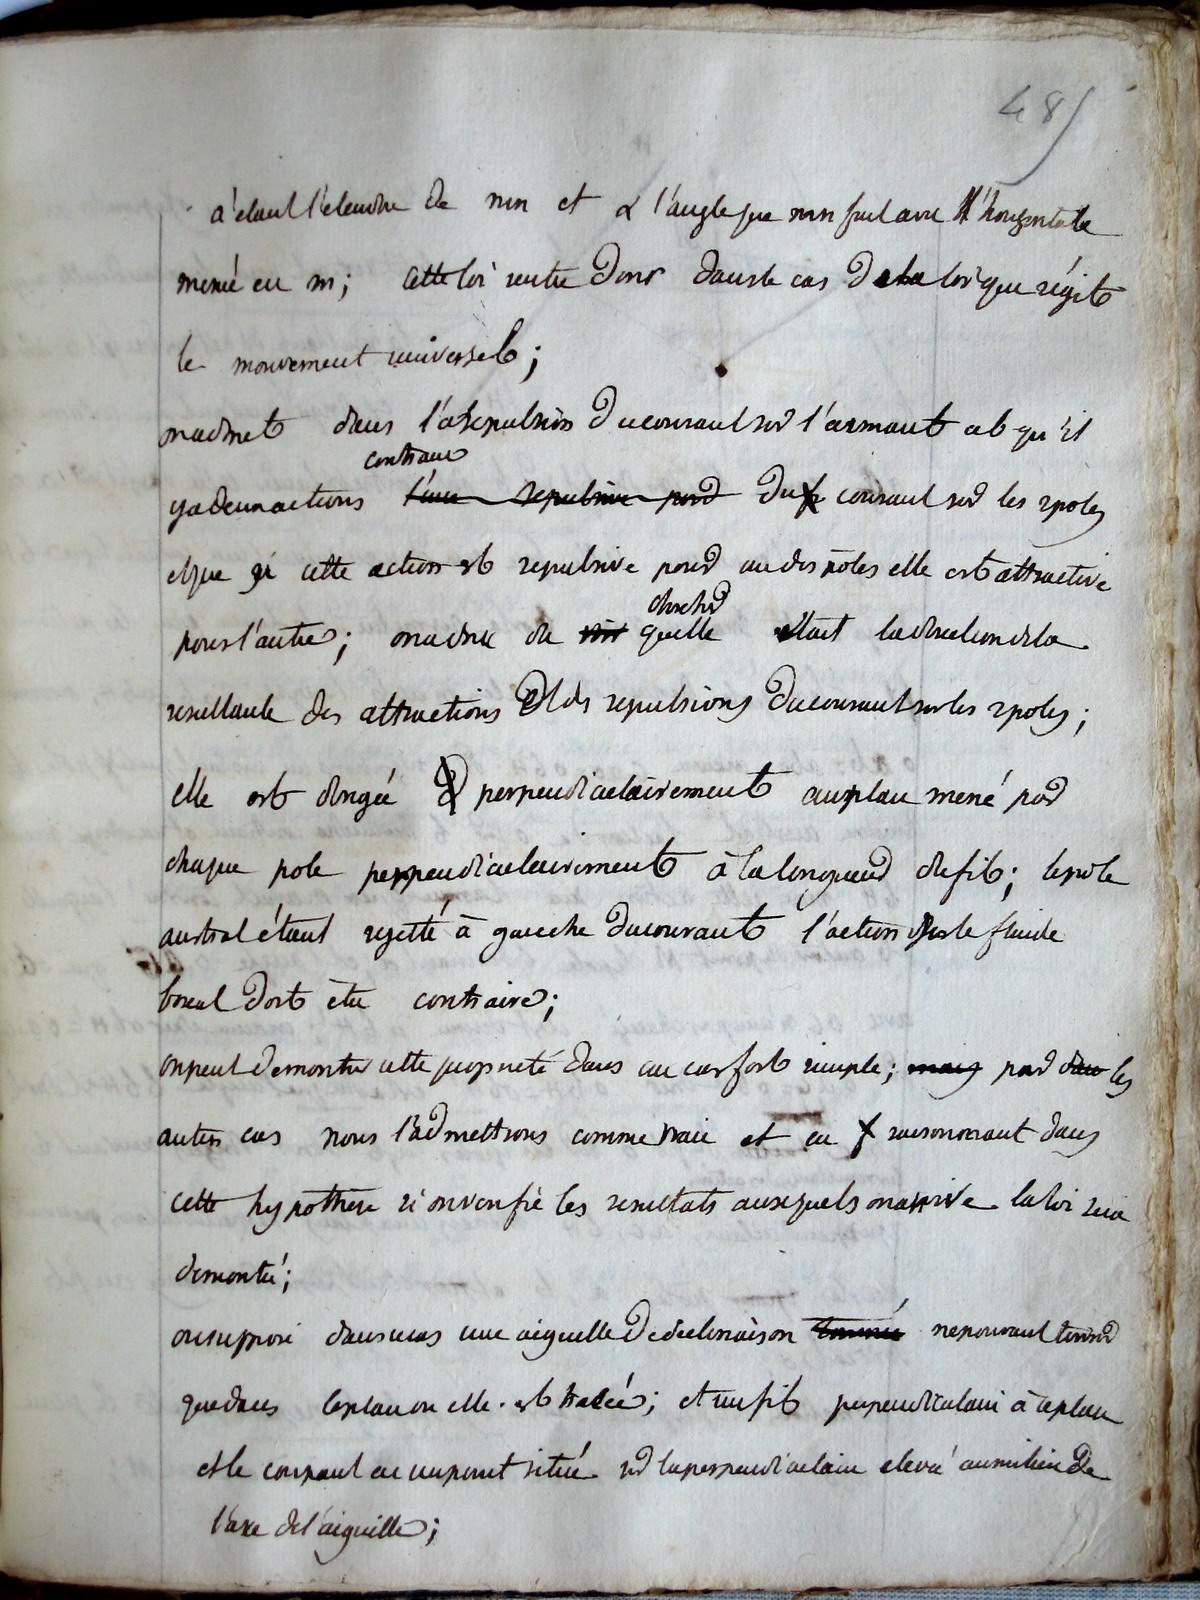 485
a' étant l'étendue de mn et α l'angle que mn fait avec l'horizontale
menée en m; cette loi rentre donc dans le cas de la loi qui régit
le mouvement universel;
on admet dans l'a repulsion du courant sur l'aimant est qu'il
contraires
y a deux actions l'une repulsive pour du courant sur les 2 poles
et que si cette action est repulsive pour un des poles elle est attractive
chercher
pour l'autre; on a du de voir quelle était la direction de la
resultante des attractions et des repulsions du courant sur les 2 poles;
elle est dirigée perpendiculairement au plan mené par
chaque pole perpendiculairement à la longueur du fil; le pole
austral étant rejetté à gauche du courant l'action sur le fluide
boreal doit être contraire;
on peut demontrer cette propriété dans un cas fort simple; mais pour dans les
autres cas nous l'admettrons comme vraie et en raisonnant dans
cette hypothese si on verifie les resultats auxquels on arrive la loi sera
demontré;
on suppose dans un cas une aiguille de declinaison tournée ne pouvant tourner
que dans le plan ou elle est tracée; et un fil perpendiculaire à ce plan
et le coupant en un point situé sur la perpendiculaire elevée au milieu de
l'axe de l'aiguille;